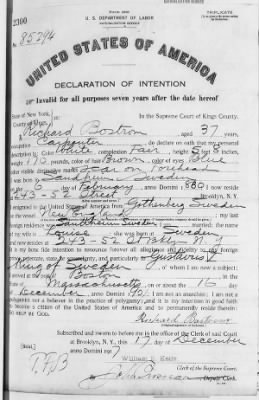 2300
Form 2203
U. S. DEPARTMENT OF LABOR
NATURALIZATION SERVICE
TRIPLICATE
No. 85294
UNITED STATES OF AMERICA
DECLARATION OF INTENTION
Invalid for all purposes seven years after the date hereof
State of New York,
County of Kings, ss:
In the Supreme Court of Kings County.
I, Richard Bostrom, aged 37 years,
occupation Carpenter, do declare on oath that my personal
description is: Color White, complexion Fair, height 5 feet 8 inches,
color of hair Brown, color of eyes Blue
other visible distinctive marks Scar on Forehead
I was born in Sandhem Sweden
on the 6 day of February, anno Domini 1880; I now reside
at 243-52 Street, Brooklyn, N.Y.
I emigrated to the United States of America from Gothenberg Sweden
on the vessel New England; my last
foreign residence was Sandhem Sweden; I am married; the name
of my wife is Louise; she was born at Sweden
and now resides at 243-52 St Brooklyn N.Y.
It is my bona fide intention to renounce forever all allegiance and fidelity to any foreign
prince, potentate, state, or sovereignty, and particularly to Gustavus V
King of Sweden, of whom I am now a subject;
I arrived at the port of Boston, in the
State of Massachusetts, on or about the 16 day
of December, anno Domini 1901; I am not an anarchist; I am not a
polygamist nor a believer in the practice of polygamy; and it is my intention in good faith
to become a citizen of the United States of America and to permanently reside therein:
SO HELP ME GOD.
Richard Bostrom
Subscribed and sworn to before me in the office of the Clerk of said Court
at Brooklyn, N.Y., this 17 day of December
anno Domini 1917
William F. Kelly
Clerk of the Supreme Court.
Deputy Clerk.